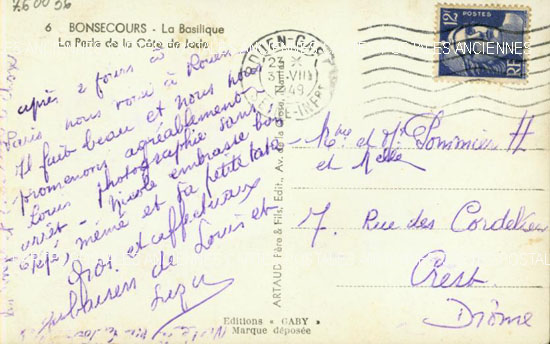 760056
6 BONSECOURS - La Basilique
La Perle de la Côte de Jade
après 2 jours à
Paris nous voici à Rouen
Il fait beau et nous nous
promenons agréablement -
Louis photographie sans
arrêt - Nicole embrasse bon
pépé, mémé et sa petite tata
Gros et affectueux
baisers de Louis et
ROUEN-GARE
23 X
31-VIII
1949
SEINE-INFRE
12F POSTES
RF
CARTES ANCIENNES
ARTAUD Père & Fils, Édit., Av. de la Close, Nantes
Mme et Mr Sommier H
et Melle
7. Rue des Cordeliers
Crest
Drôme
Editions « GABY »
Marque déposée